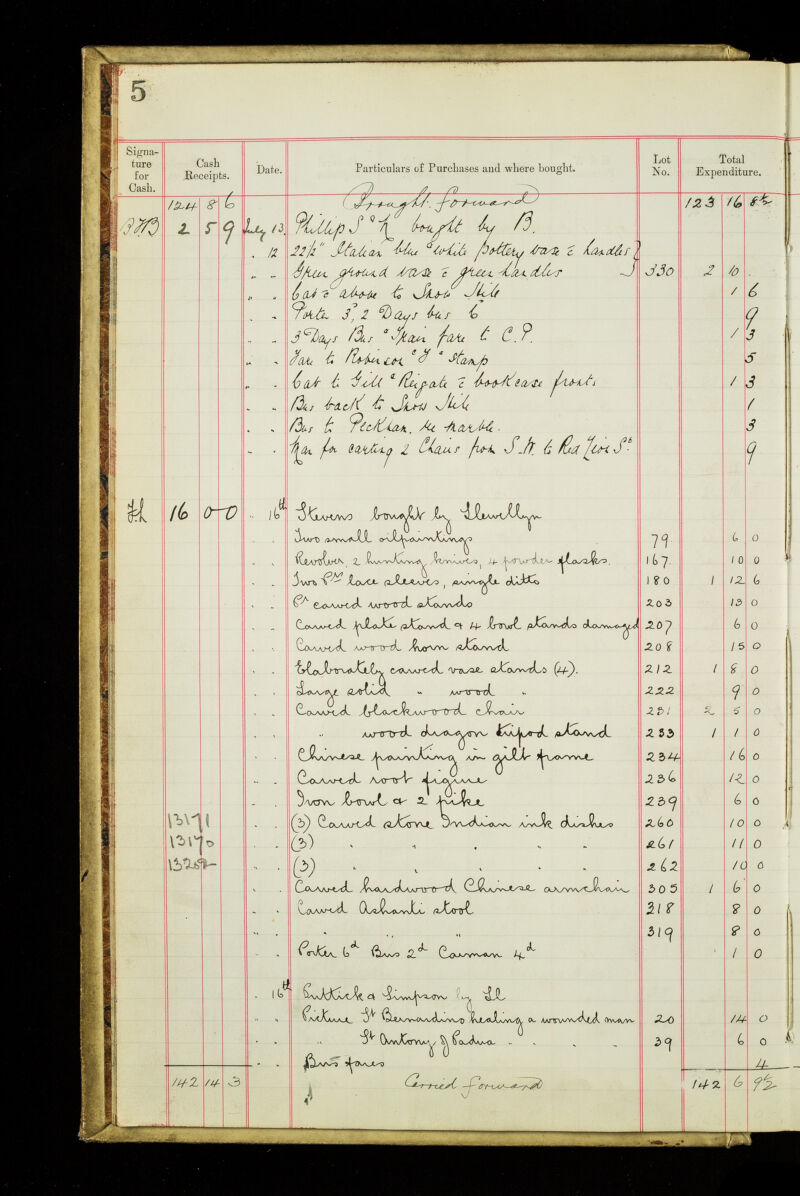 5
Signature for Cash. Cash Receipts. Date. Particulars of Purchases and where bought. Lot No. Total Expenditure.
124 8 6 Brought forward 123 16 8½
2 5 9 July 13. Phillips S & N bought by B.
12 22½" Italian blue & white pottery vase c handles }
Green ground vase c green handles } 330 2 10
Cab c above to Snow Hill 1 6
Porter 3d, 2 Days bus 6 9
3 Days Bus & train fare to C.P. 1 3
Fare to Robinson & F & Stamp 5
Cab to Gill & Reigate c bookcase fronts 1 3
Bus back to Snow Hill 1
Bus to Peckham, re marble. 3
for carting 2 Chairs from S.H. to Red Lion St 9
Ll 16 0-0 16th Stevens bought by Llewellyn
Two small oilpaintings 79 6 0
Revolver, 2 hunting knives, 4 powder flasks. 167 10 0
Two Pr Lace sleeves, single ditto 180 1 12 6
Pr carved wood stands 203 13 0
Carved plate stand & 4 bowl stands damaged 207 6 0
Carved wood horn stand 208 15 0
Elaborately carved vase stands (4). 212 1 8 0
Large solid " wood " 222 9 0
Carved blackwood chair 231 2 5 0
" wood dragon tripod stand 233 1 1 0
Chinese painting in gilt frame 234 16 0
Carved root figure 236 12 0
Iron bowl & 2 pike 239 6 0
13171 (3) Carved stone Indian ink dishes 260 10 0
13170 (3) " " " " 261 11 0
(3) " " " " 262 10 0
Carved hardwood Chinese armchair 305 1 6 0
Carved Ashanti stool 318 8 0
" " " 319 8 0
Porter 6d Bus 2d Carman 4d 1 0
16th Puttick & Simpson by Ll
Picture St Bernardino healing a wounded man 20 14 0
" St Antony of Padua " " " 39 6 0
Bus fares 4
142 14 3 Carried forward 142 6 9½